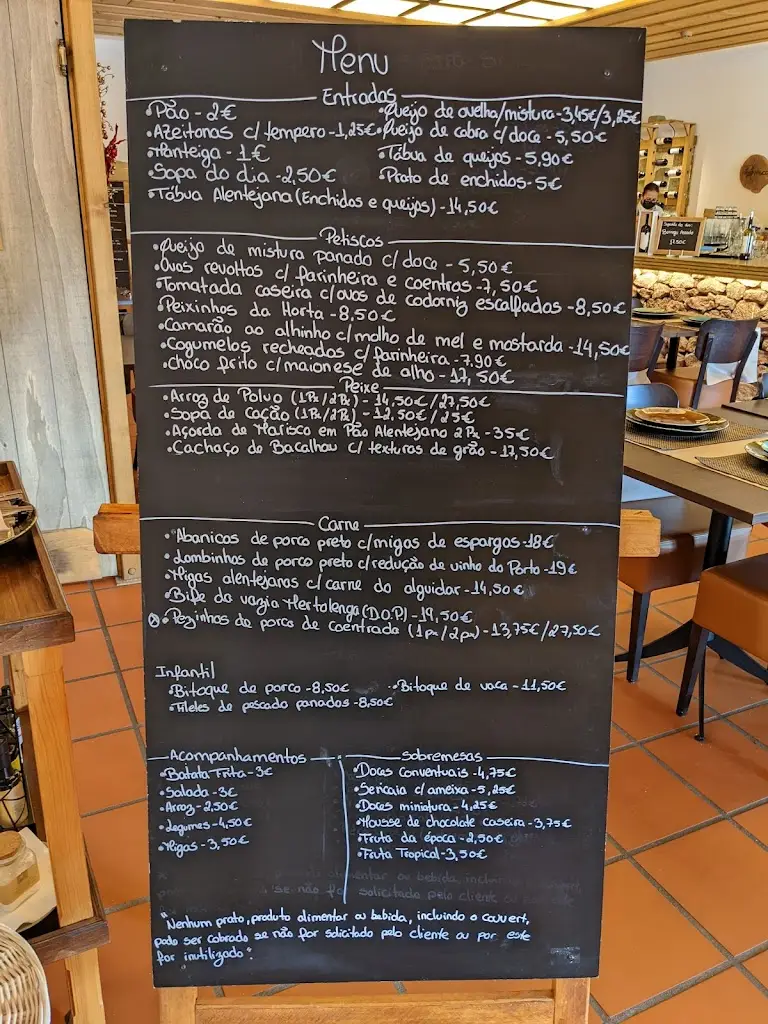 Menu
Entradas
•Pão - 2€
•Azeitonas c/ tempero - 1,25€
•Manteiga - 1€
•Sopa do dia - 2,50€
•Tábua Alentejana (Enchidos e queijos) - 14,50€
•Queijo de ovelha/mistura - 3,45€/3,25€
•Queijo de cabra c/ doce - 5,50€
•Tábua de queijos - 5,90€
•Prato de enchidos - 5€
Petiscos
•Queijo de mistura panado c/ doce - 5,50€
•Ovos revoltos c/ farinheira e coentros - 7,50€
•Tomatada caseira c/ovos de codorniz escalfados - 8,50€
•Peixinhos da Horta - 8,50€
•Camarão ao alhinho c/molho de mel e mostarda - 14,50€
•Cogumelos recheados c/ farinheira - 7,90€
•Choco frito c/ maionese de alho - 17,50€
Peixe
•Arroz de Polvo (1Px/2Px) - 14,50€/27,50€
•Sopa de Cação (1Px/2Px) - 12,50€/25€
•Açorda de Marisco em Pão Alentejano 2Px - 35€
•Cachaço de Bacalhau c/ texturas de grão - 17,50€
Carne
•Abanicos de porco preto c/migas de espargos - 18€
•Lombinhos de porco preto c/redução de vinho do Porto - 19€
•Migas alentejanas c/ carne do alguidar - 14,50€
•Bife da vazia Mertolenga (D.O.P.) - 19,50€
•Pezinhos de porco de coentrada (1px/2px) - 13,75€/27,50€
Infantil
•Bitoque de porco - 8,50€
•Filetes de pescado panados - 8,50€
•Bitoque de vaca - 11,50€
Acompanhamentos
•Batata Frita - 3€
•Salada - 3€
•Arroz - 2,50€
•Legumes - 4,50€
•Migas - 3,50€
Sobremesas
•Doces Conventuais - 4,75€
•Sericaia c/ ameixa - 5,25€
•Doces miniatura - 4,25€
•Mousse de chocolate caseira - 3,75€
•Fruta da época - 2,50€
•Fruta Tropical - 3,50€
"Nenhum prato, produto alimentar ou bebida, incluindo o couvert,
pode ser cobrado se não for solicitado pelo cliente ou por este
for inutilizado".